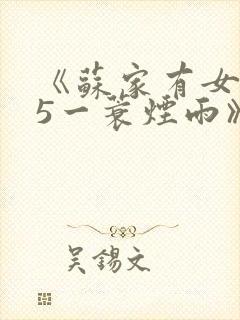 《蘇家有女
5一蓑煙雨》
吳錫文